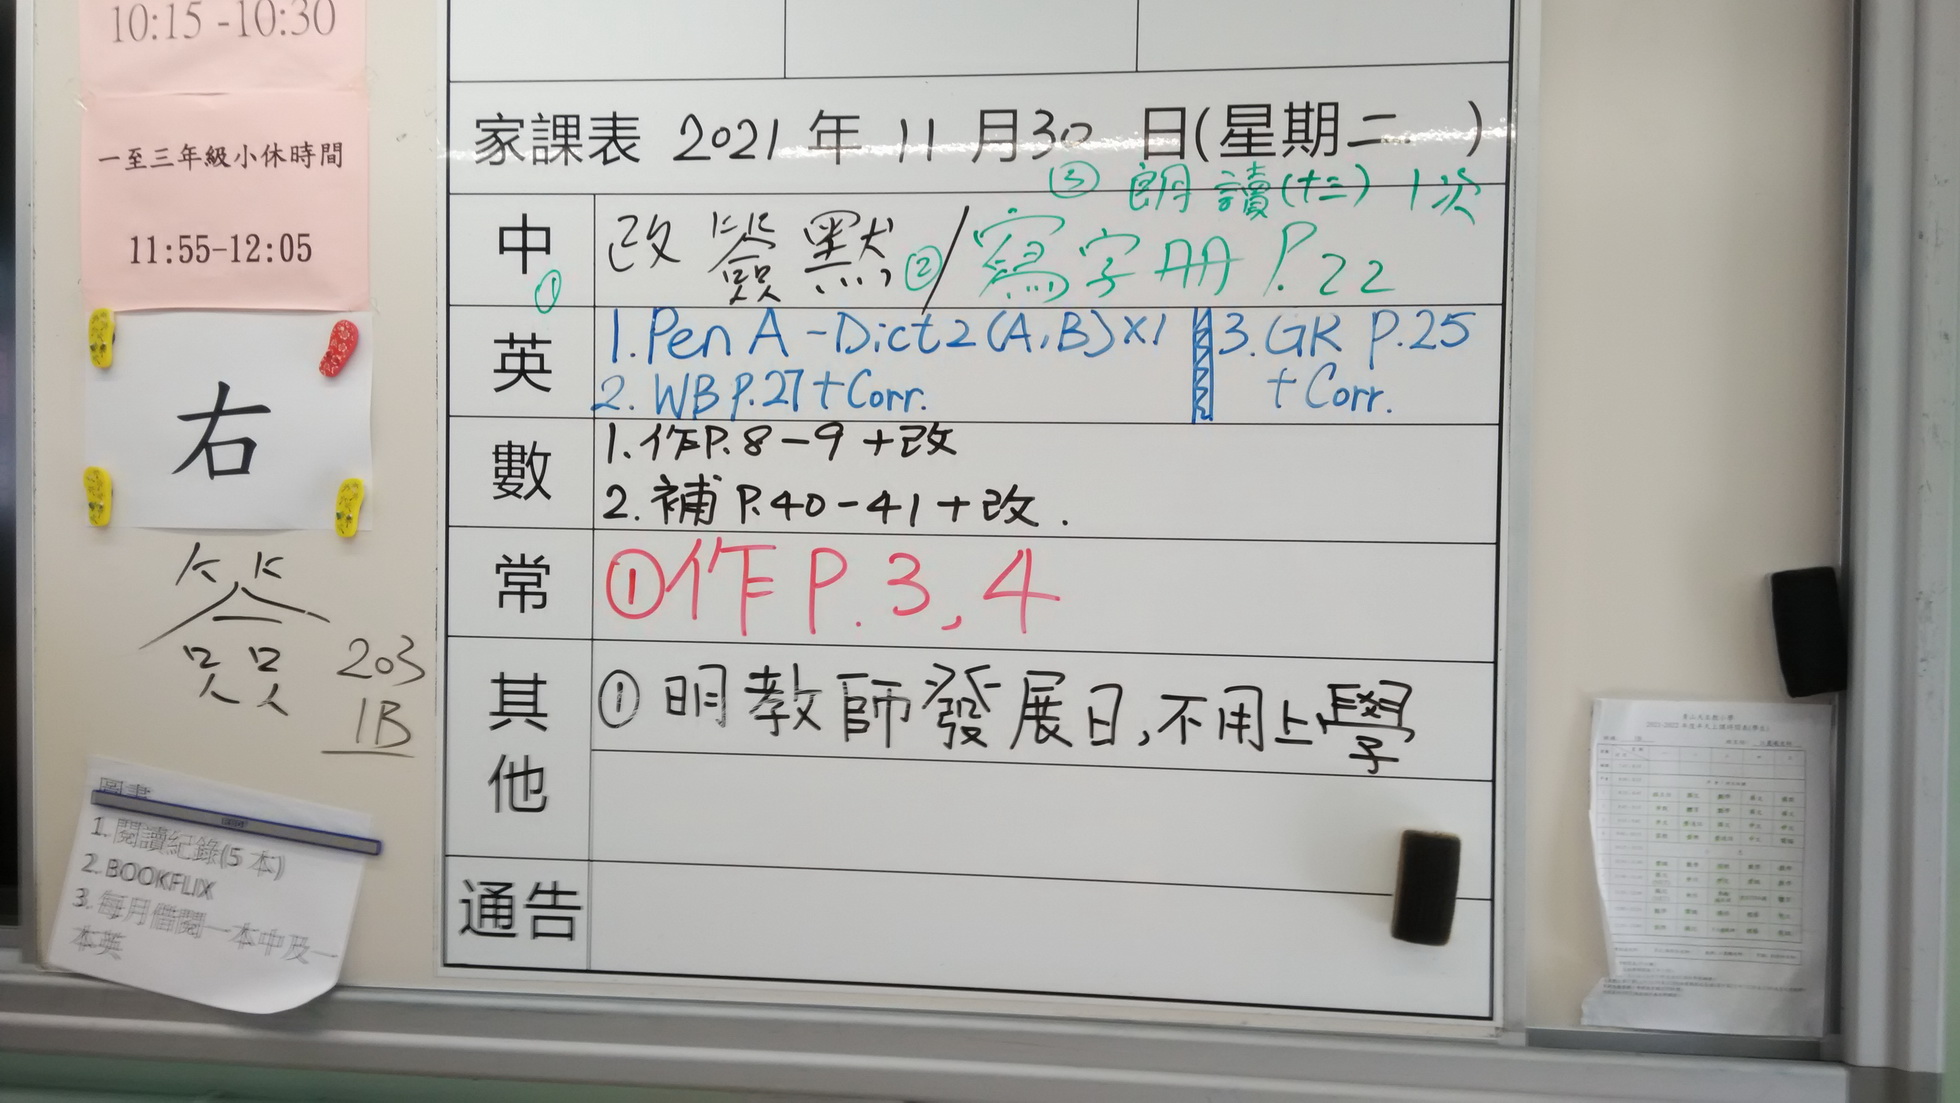 10:15-10:30
一至三年級小休時間
11:55-12:05
右
簽
203
1B
圖書
1. 閱讀紀錄(5 本)
2. BOOKFLIX
3. 每月借閱一本中及一
本英
家課表 2021 年 11 月 30 日(星期二 )
中 ① 改簽默 ② / 寫字冊 P.22
③ 朗讀(十二) 1次
英 1. Pen A - Dict 2 (A, B) x1 3. GR P.25
2. WB P.27 + Corr. + Corr.
數 1. 作P.8-9 +改
2. 補 P.40-41 +改.
常 ①作 P.3,4
其他 ① 明教師發展日,不用上學
通告